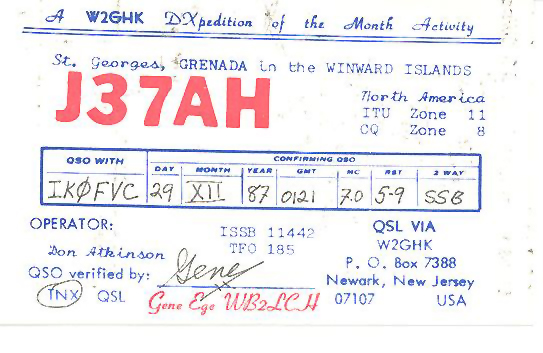 A W2GHK DXpedition of the Month Activity
St. Georges, GRENADA in the WINWARD ISLANDS
J37AH
North America
ITU Zone 11
CQ Zone 8
QSO WITH
CONFIRMING QSO
DAY MONTH YEAR GMT MC RST 2 WAY
IKØFVC 29 XII 87 0121 7.0 5-9 SSB
OPERATOR:
Don Atkinson
ISSB 11442
TFO 185
QSO verified by: Gene
TNX QSL
Gene Ego WB2LCH
QSL VIA
W2GHK
P. O. Box 7388
Newark, New Jersey
07107 USA